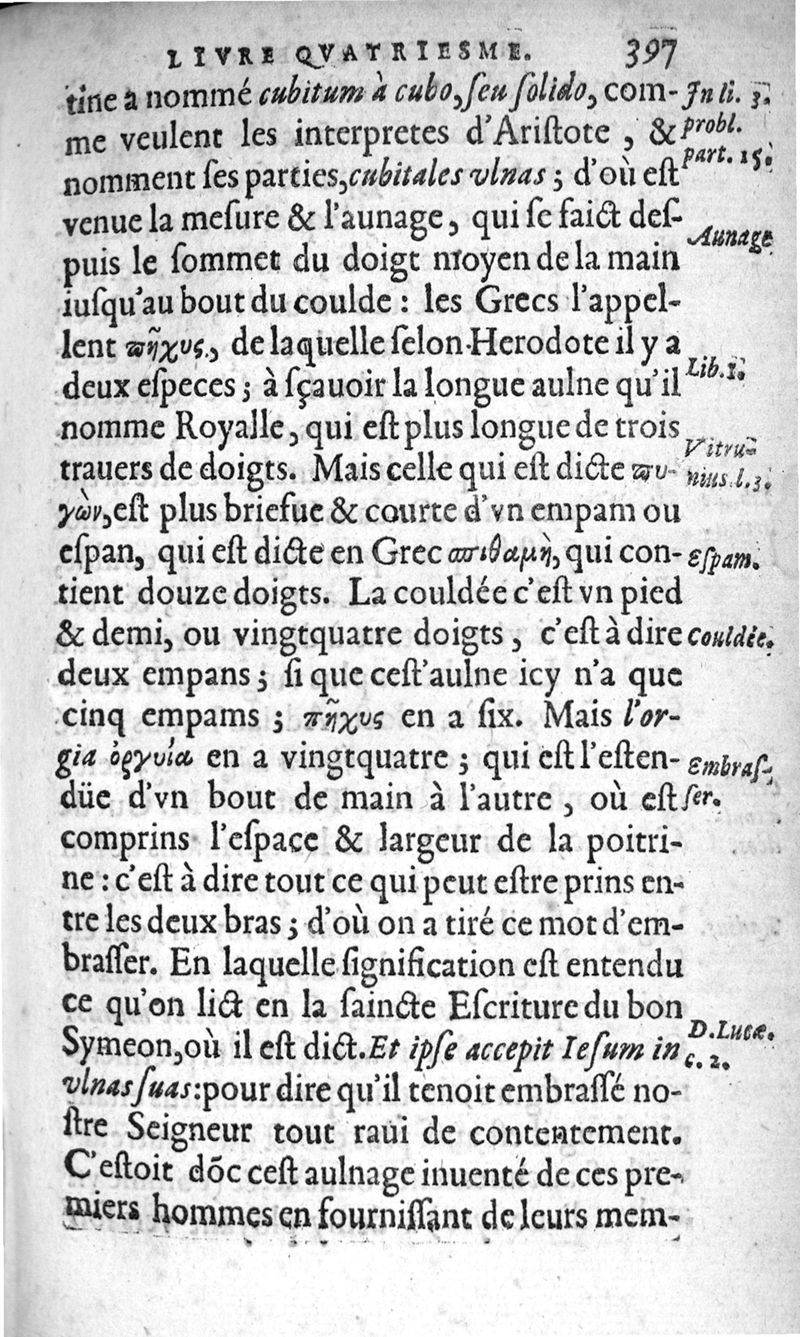 LIVRE QVATRIESME. 397
tine a nommé cubitum à cubo, ſeu ſolido, com-
me veulent les interpretes d'Ariſtote , &
nomment ſes parties, cubitales vlnas ; d'où eſt
venue la meſure & l'aunage, qui ſe faict deſ-
puis le ſommet du doigt moyen de la main
iuſqu'au bout du coulde : les Grecs l'appel-
lent ϖῆχυς., de laquelle ſelon Herodote il y a
deux eſpeces ; à ſçauoir la longue aulne qu'il
nomme Royalle, qui eſt plus longue de trois
trauers de doigts. Mais celle qui eſt dicte ϖυ-
γὼν, eſt plus briefue & courte d'vn empam ou
eſpan, qui eſt dicte en Grec σπιθαμὴ, qui con-
tient douze doigts. La couldée c'eſt vn pied
& demi, ou vingtquatre doigts , c'eſt à dire
deux empans ; ſi que ceſt'aulne icy n'a que
cinq empams ; πῆχυς en a ſix. Mais l'or-
gia ὀργυία en a vingtquatre ; qui eſt l'eſten-
düe d'vn bout de main à l'autre , où eſt
comprins l'eſpace & largeur de la poitri-
ne : c'eſt à dire tout ce qui peut eſtre prins en-
tre les deux bras ; d'où on a tiré ce mot d'em-
braſſer. En laquelle ſignification eſt entendu
ce qu'on lict en la ſaincte Eſcriture du bon
Symeon, où il eſt dict. Et ipſe accepit Ieſum in
vlnas ſuas : pour dire qu'il tenoit embraſſé no-
ſtre Seigneur tout raui de contentement.
C'eſtoit dõc ceſt aulnage inuenté de ces pre-
miers hommes en fourniſſant de leurs mem-
In li. 3.
probl.
part. 15.
Aunage
Lib. 1.
Vitru-
uius l. 3.
eſpam.
Couldée.
Embraſ-
ſer.
D. Lucæ.
c. 2.